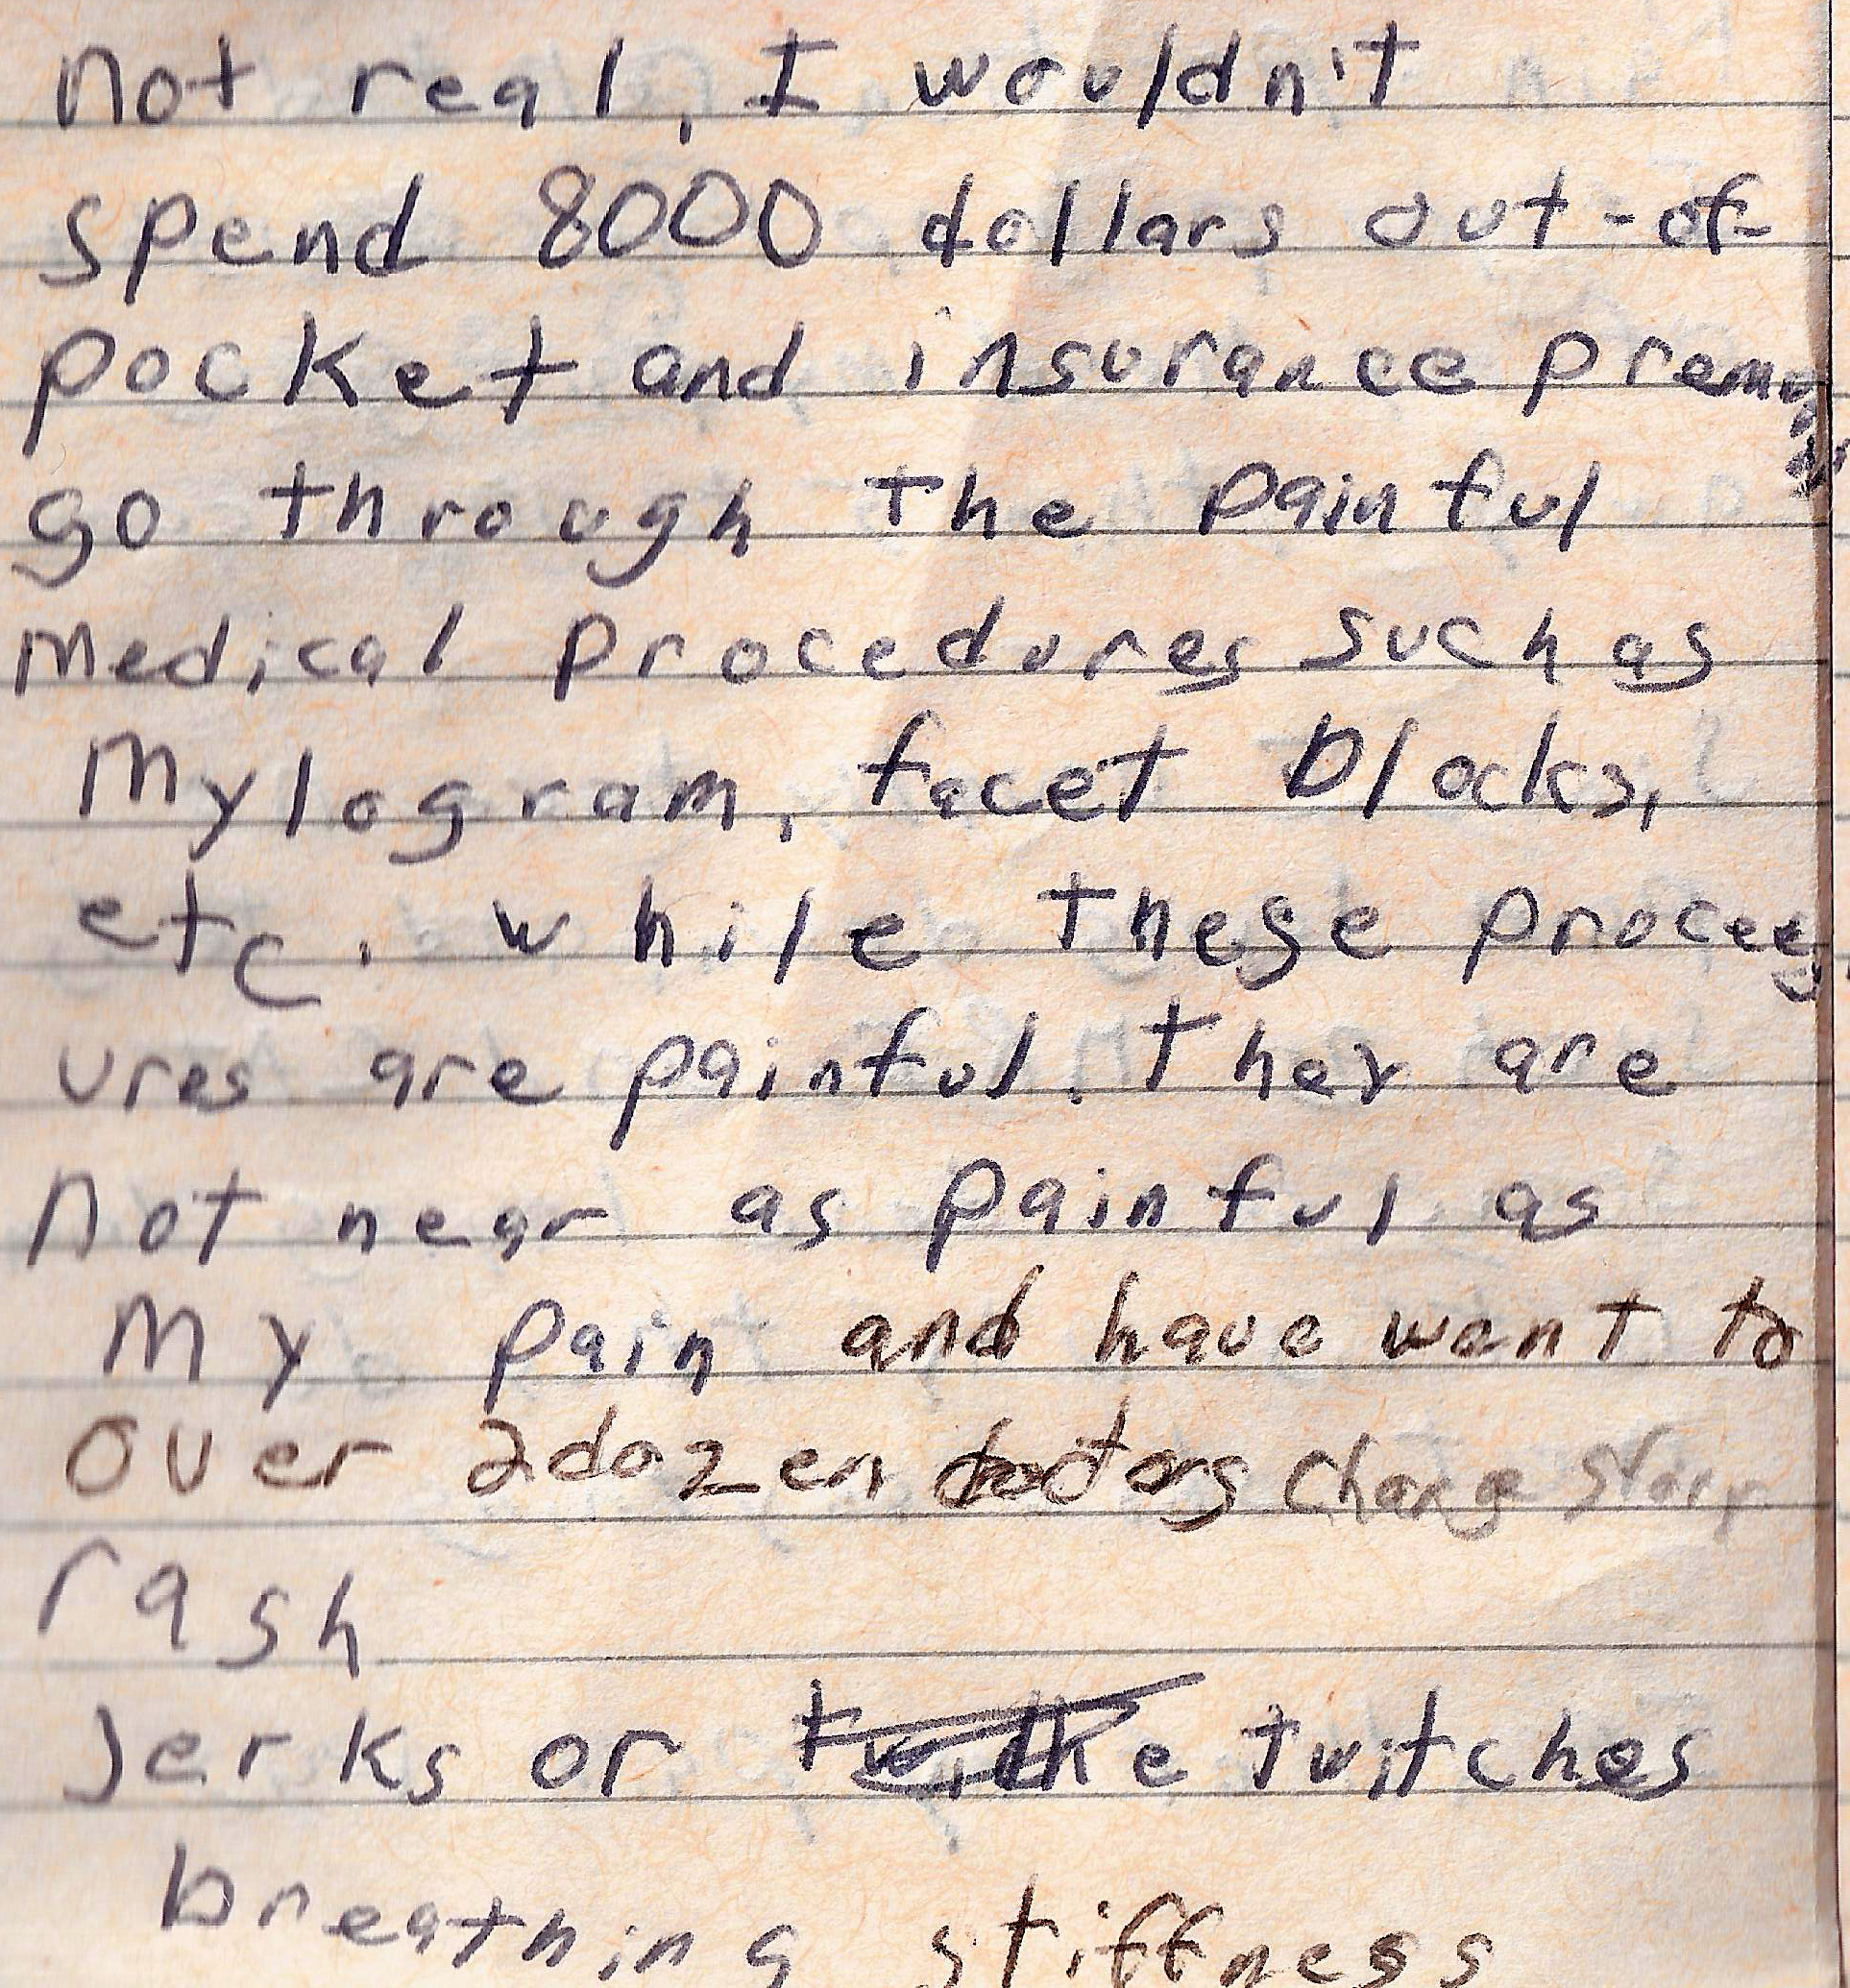 not real, I wouldn't
spend 8000 dollars out-of-
pocket and insurance
go through the painful
medical procedures such as
Mylogram, facet blocks,
etc. while these
ures are painful. They are
not near as painful as
My pain and have went to
over 2 dozen doctors change story
rash
Jerks or twitches
breathing stiffness